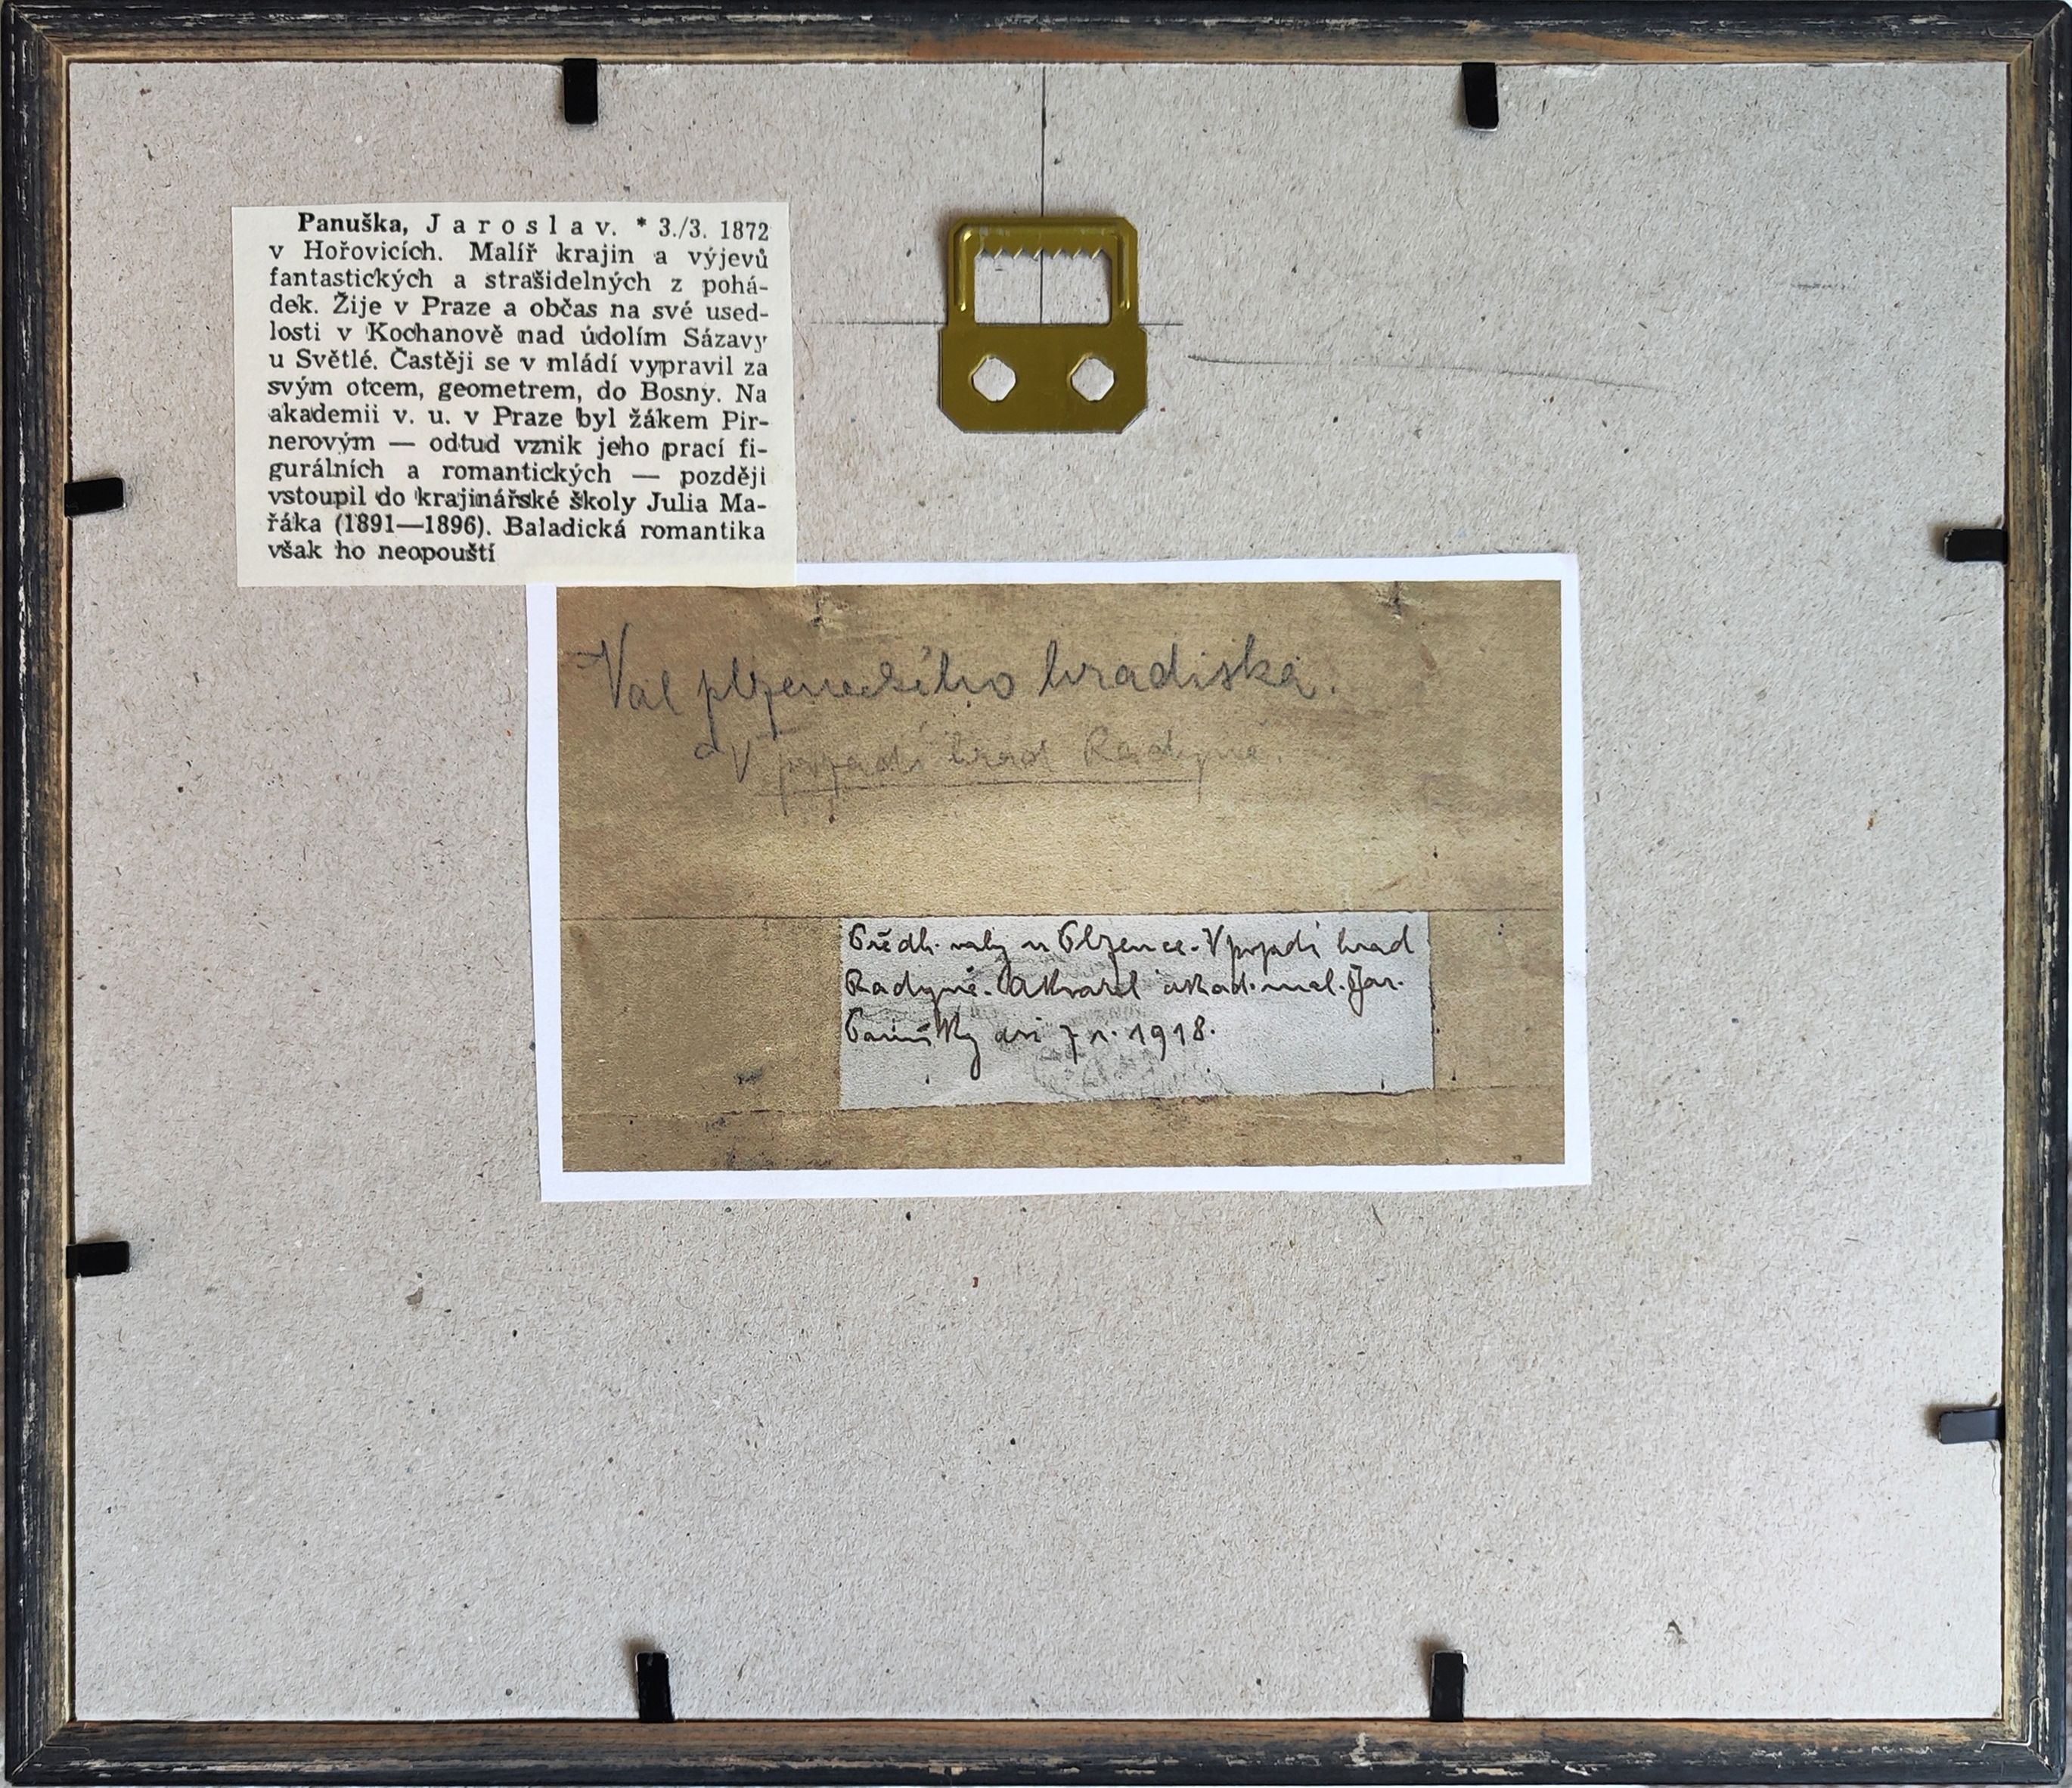 Panuška, Jaroslav. * 3./3. 1872
v Hořovicích. Malíř krajin a výjevů
fantastických a strašidelných z pohá-
dek. Žije v Praze a občas na své used-
losti v Kochanově nad údolím Sázavy
u Světlé. Častěji se v mládí vypravil za
svým otcem, geometrem, do Bosny. Na
akademii v. u. v Praze byl žákem Pir-
nerovým — odtud vznik jeho prací fi-
gurálních a romantických — později
vstoupil do krajinářské školy Julia Ma-
řáka (1891—1896). Baladická romantika
však ho neopouští
Val plzeneckého hradiska.
V pozadí hrad Radyně.
Předh. valy u Plzence. V pozadí hrad
Radyně. Akvarel akad. mal. Jar.
Panušky asi z r. 1918.